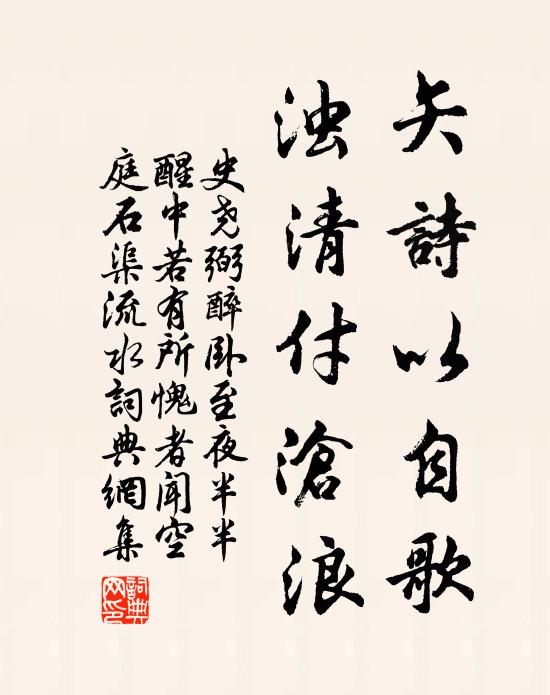 矢詩以自歌
浊清付滄浪
史尧弼醉卧至夜半半
醒中若有所愧者闻空
庭石渠流水詞典網集
詞典
网印